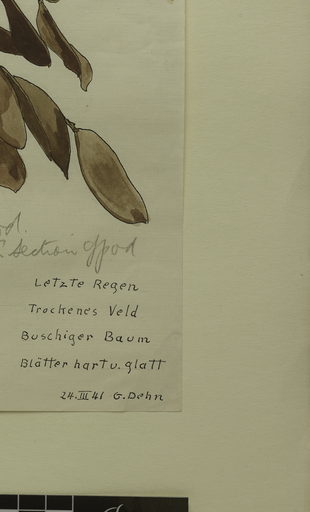 section of pod
Letzte Regen
Trockenes Veld
Buschiger Baum
Blätter hart u. glatt
24.III 41 G. Dehn